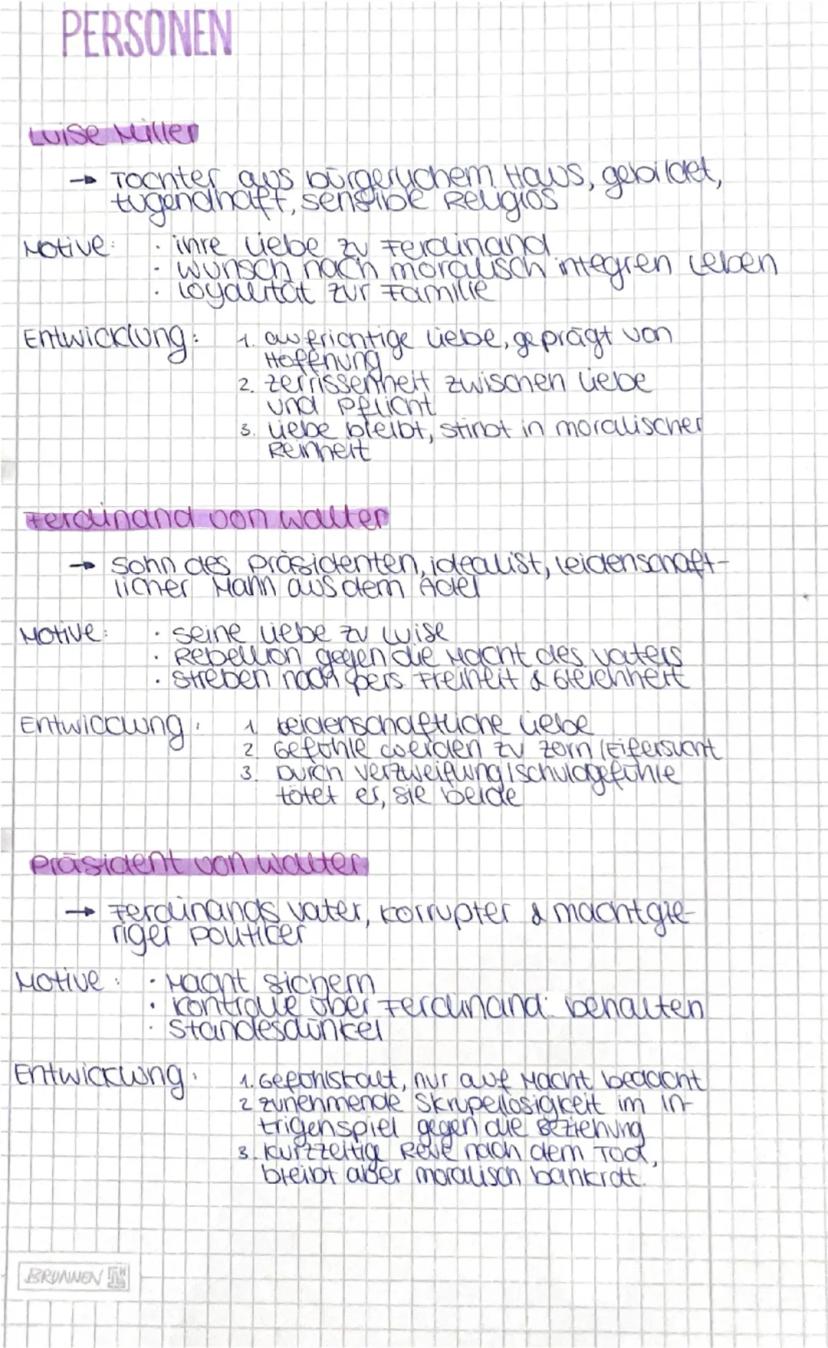 PERSONEN
Luise Miller
→ Tochter aus bürgerlichem Haus, gebildet,
tugendhaft, sensible Religiös
Motive: · ihre Liebe zu Ferdinand
· Wunsch nach moralisch integren Leben
· Loyalität zur Familie
Entwicklung: 1. aufrichtige Liebe, geprägt von
Hoffnung
2. Zerrissenheit zwischen Liebe
und Pflicht
3. Liebe bleibt, stirbt in moralischer
Reinheit
Ferdinand von Walter
→ Sohn des Präsidenten, idealist, leidenschaft-
licher Mann aus dem Adel
Motive: · seine Liebe zu Luise
· Rebellion gegen die Macht des Vaters
· Streben nach pers Freiheit & Gleichheit
Entwicklung: 1 leidenschaftliche Liebe
2 Gefühle werden zu Zorn/Eifersucht
3. Durch Verzweiflung/Schuldgefühle
tötet er, sie beide
Präsident von Walter
→ Ferdinands Vater, korrupter & machtgie-
riger Politiker
Motive: · Macht sichern
· Kontrolle über Ferdinand behalten
· Standesdünkel
Entwicklung: 1. Gefühlskalt, nur auf Macht bedacht
2 zunehmende Skrupellosigkeit im In-
trigenspiel gegen die Beziehung
3. Kurzzeitig Reue nach dem Tod,
bleibt aber moralisch bankrott.
BRUNNEN